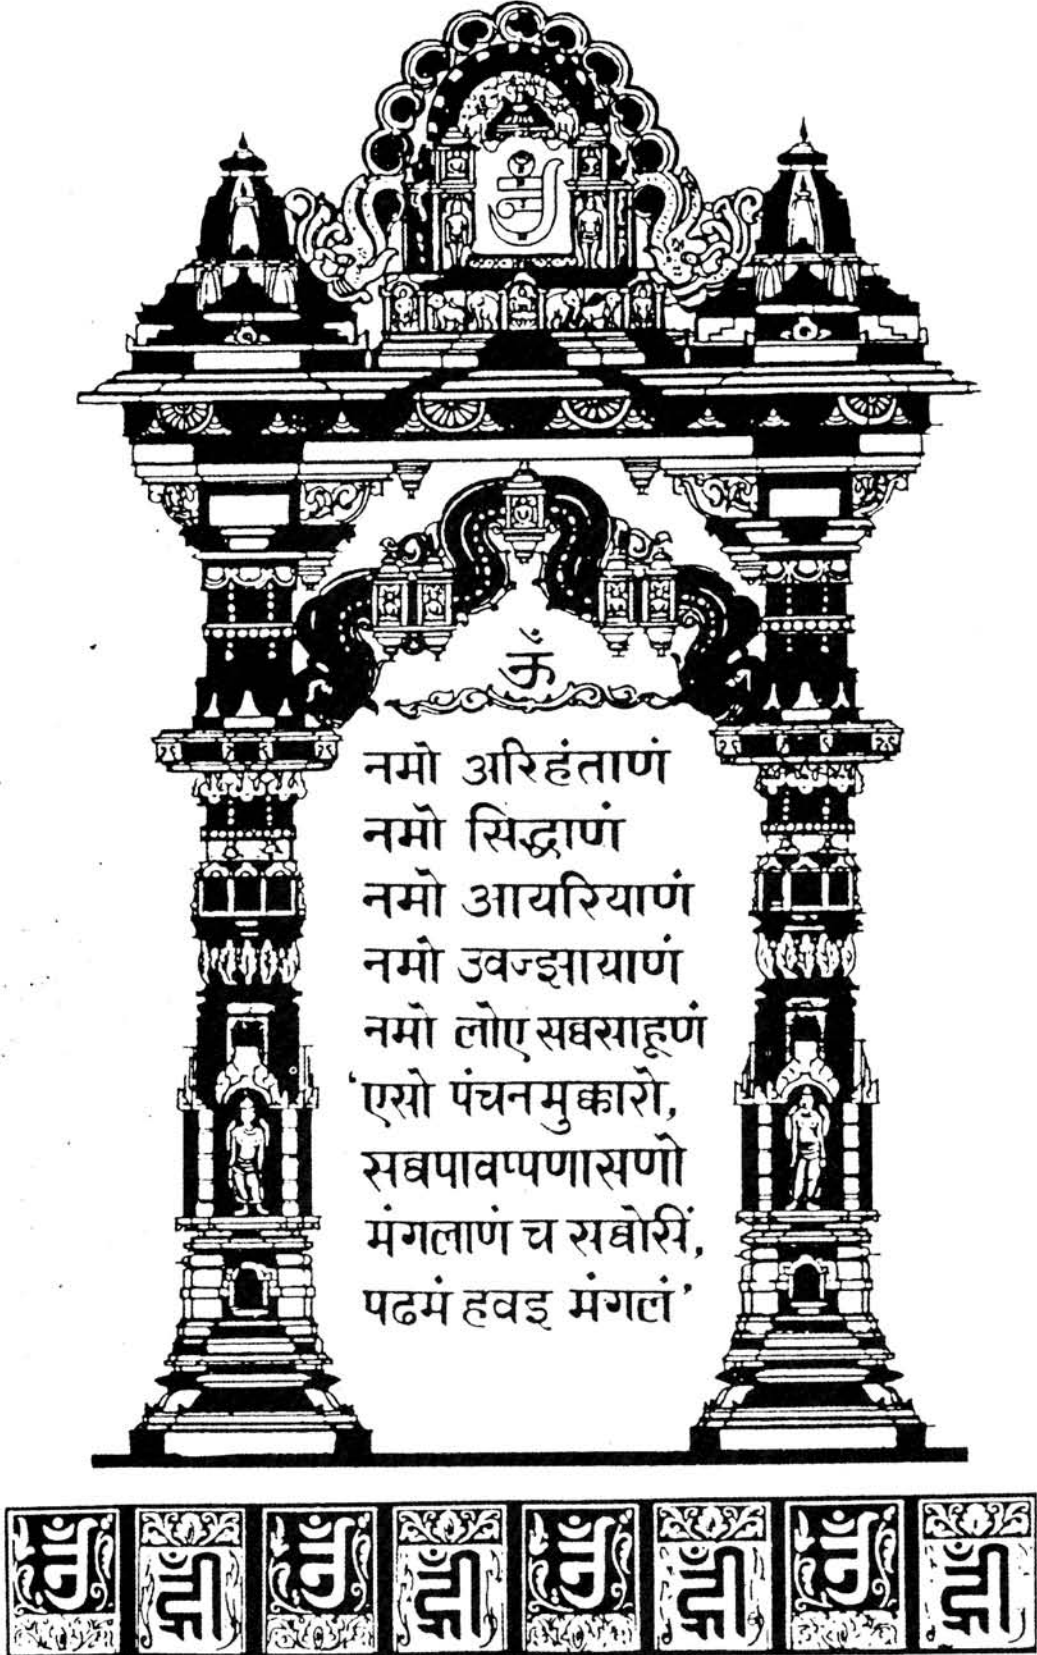 ॐ
नमो अरिहंताणं
नमो सिद्धाणं
नमो आयरियाणं
नमो उवज्झायाणं
नमो लोए सव्वसाहूणं
‘एसो पंचनमुक्कारो,
सव्वपावप्पणासणो
मंगलाणं च सव्वेसिं,
पढमं हवइ मंगलं’